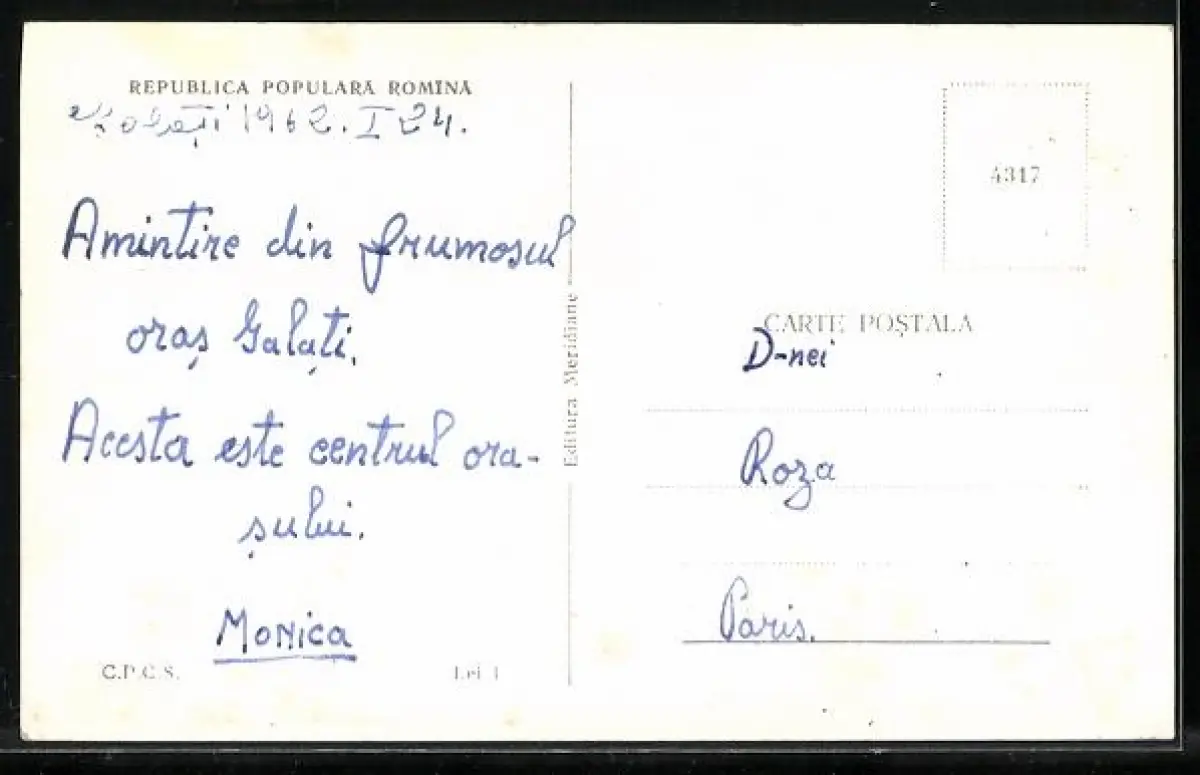 REPUBLICA POPULARĂ ROMÎNĂ
Galați 1962. I 24.
Amintire din frumosul
oraș Galați.
Acesta este centrul ora-
șului.
Monica
C.P.C.S.
Lei 1
Editura Meridiane
4317
CARTE POȘTALĂ
D-nei
Roza
Paris.